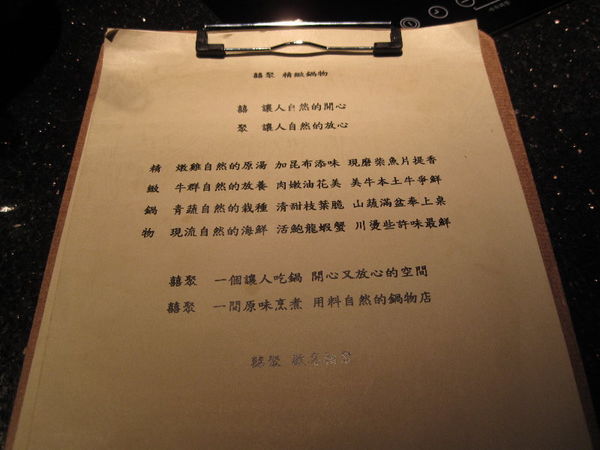 囍聚 精緻鍋物
囍 讓人自然的開心
聚 讓人自然的放心
精 燉雞自然的原湯 加昆布添味 現磨柴魚片提香
緻 牛群自然的放養 肉嫩油花美 美牛本土牛爭鮮
鍋 青蔬自然的栽種 清甜枝葉脆 山蔬滿盆奉上桌
物 現流自然的海鮮 活鮑龍蝦蟹 川燙些許味最鮮
囍聚 一個讓人吃鍋 開心又放心的空間
囍聚 一間原味烹煮 用料自然的鍋物店
囍聚